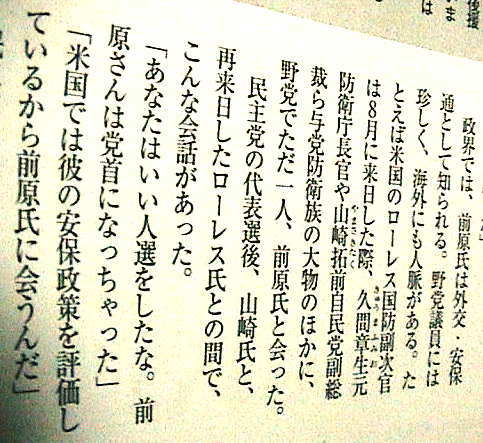 後援
いま
は
政界では、前原氏は外交・安保
通として知られる。野党議員には
珍しく、海外にも人脈がある。た
とえば米国のローレス国防副次官
は8月に来日した際、久間章生元
防衛庁長官や山崎拓前自民党副総
裁ら与党防衛族の大物のほかに、
野党でただ一人、前原氏と会った。
民主党の代表選後、山崎氏と、
再来日したローレス氏との間で、
こんな会話があった。
「あなたはいい人選をしたな。前
原さんは党首になっちゃった」
「米国では彼の安保政策を評価し
ているから前原氏に会うんだ」